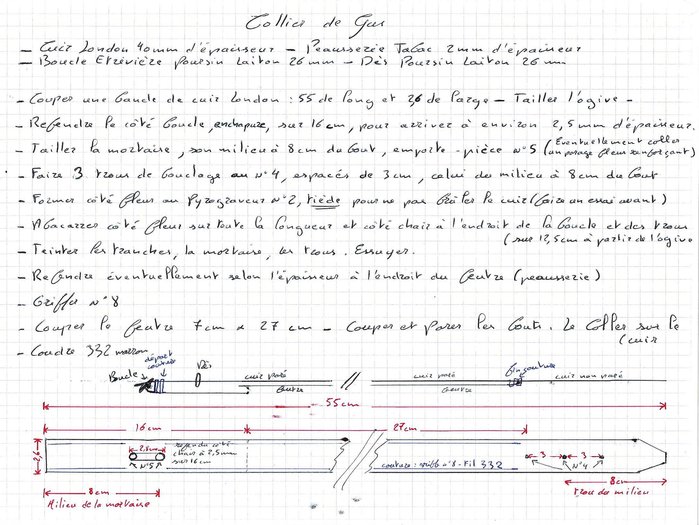 Collier de Gus
- Cuir London 40mm d'épaisseur - Peausserie Tabac 2mm d'épaisseur
- Boucle Etrévière Poursin Laiton 26mm - Dés Poursin Laiton 26mm
- Couper une bande de cuir London : 55 de long et 2,6 de large - Tailler l'ogive -
- Refendre le côté boucle, enchapure, sur 16cm, pour arriver à environ 2,5mm d'épaisseur.
- Tailler la mortaise, son milieu à 8cm du bout, emporte-pièce n°5 (Eventuellement coller
un parage fleur renforçant)
- Faire 3 trous de bouclage au n°4, espacés de 3cm, celui du milieu à 8cm du bout
- Former côté fleur au Pyrograveur n°2, tiède pour ne pas brûler le cuir (faire un essai avant)
- Abacarrer côté fleur sur toute la longueur et côté chair à l'endroit de la boucle et des trous
(sur 12,5cm à partir de l'ogive
- Teinter les tranches, la mortaise, les trous. Essuyer.
- Refendre éventuellement selon l'épaisseur à l'endroit du feutre (peausserie)
- Griffer n°8
- Couper le feutre 7cm x 27cm - Couper et parer les bouts. Le Coller sur le
(cuir
- Coudre 332 marron
départ
couture
Boucle
Dés
cuir paré
feutre
cuir paré
feutre
fin couture
cuir non paré
55cm
16cm
27cm
2,6
2,5cm
n°5
refendu côté
chair à 2,5mm
sur 16cm
couture : griffe n°8 - Fil 332
3
3
n°4
8cm
Milieu de la mortaise
8cm
trou du milieu